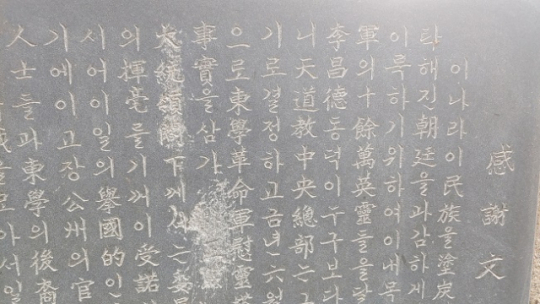 感謝文
이나라이民族을塗炭
타해진朝廷을과감하게
이룩하기위하여이내목
軍의十餘萬英靈들을달
李昌德동덕이누구보다
니天道敎中央總部는
기로결정하고금년六월
으로東學革命軍慰靈塔
事實을삼가
大統領閣下께서는委員
의揮毫를기꺼이受諾
시어이일의擧國的인
기에이고장公州의官
人士들과東學의後裔
을모아서일